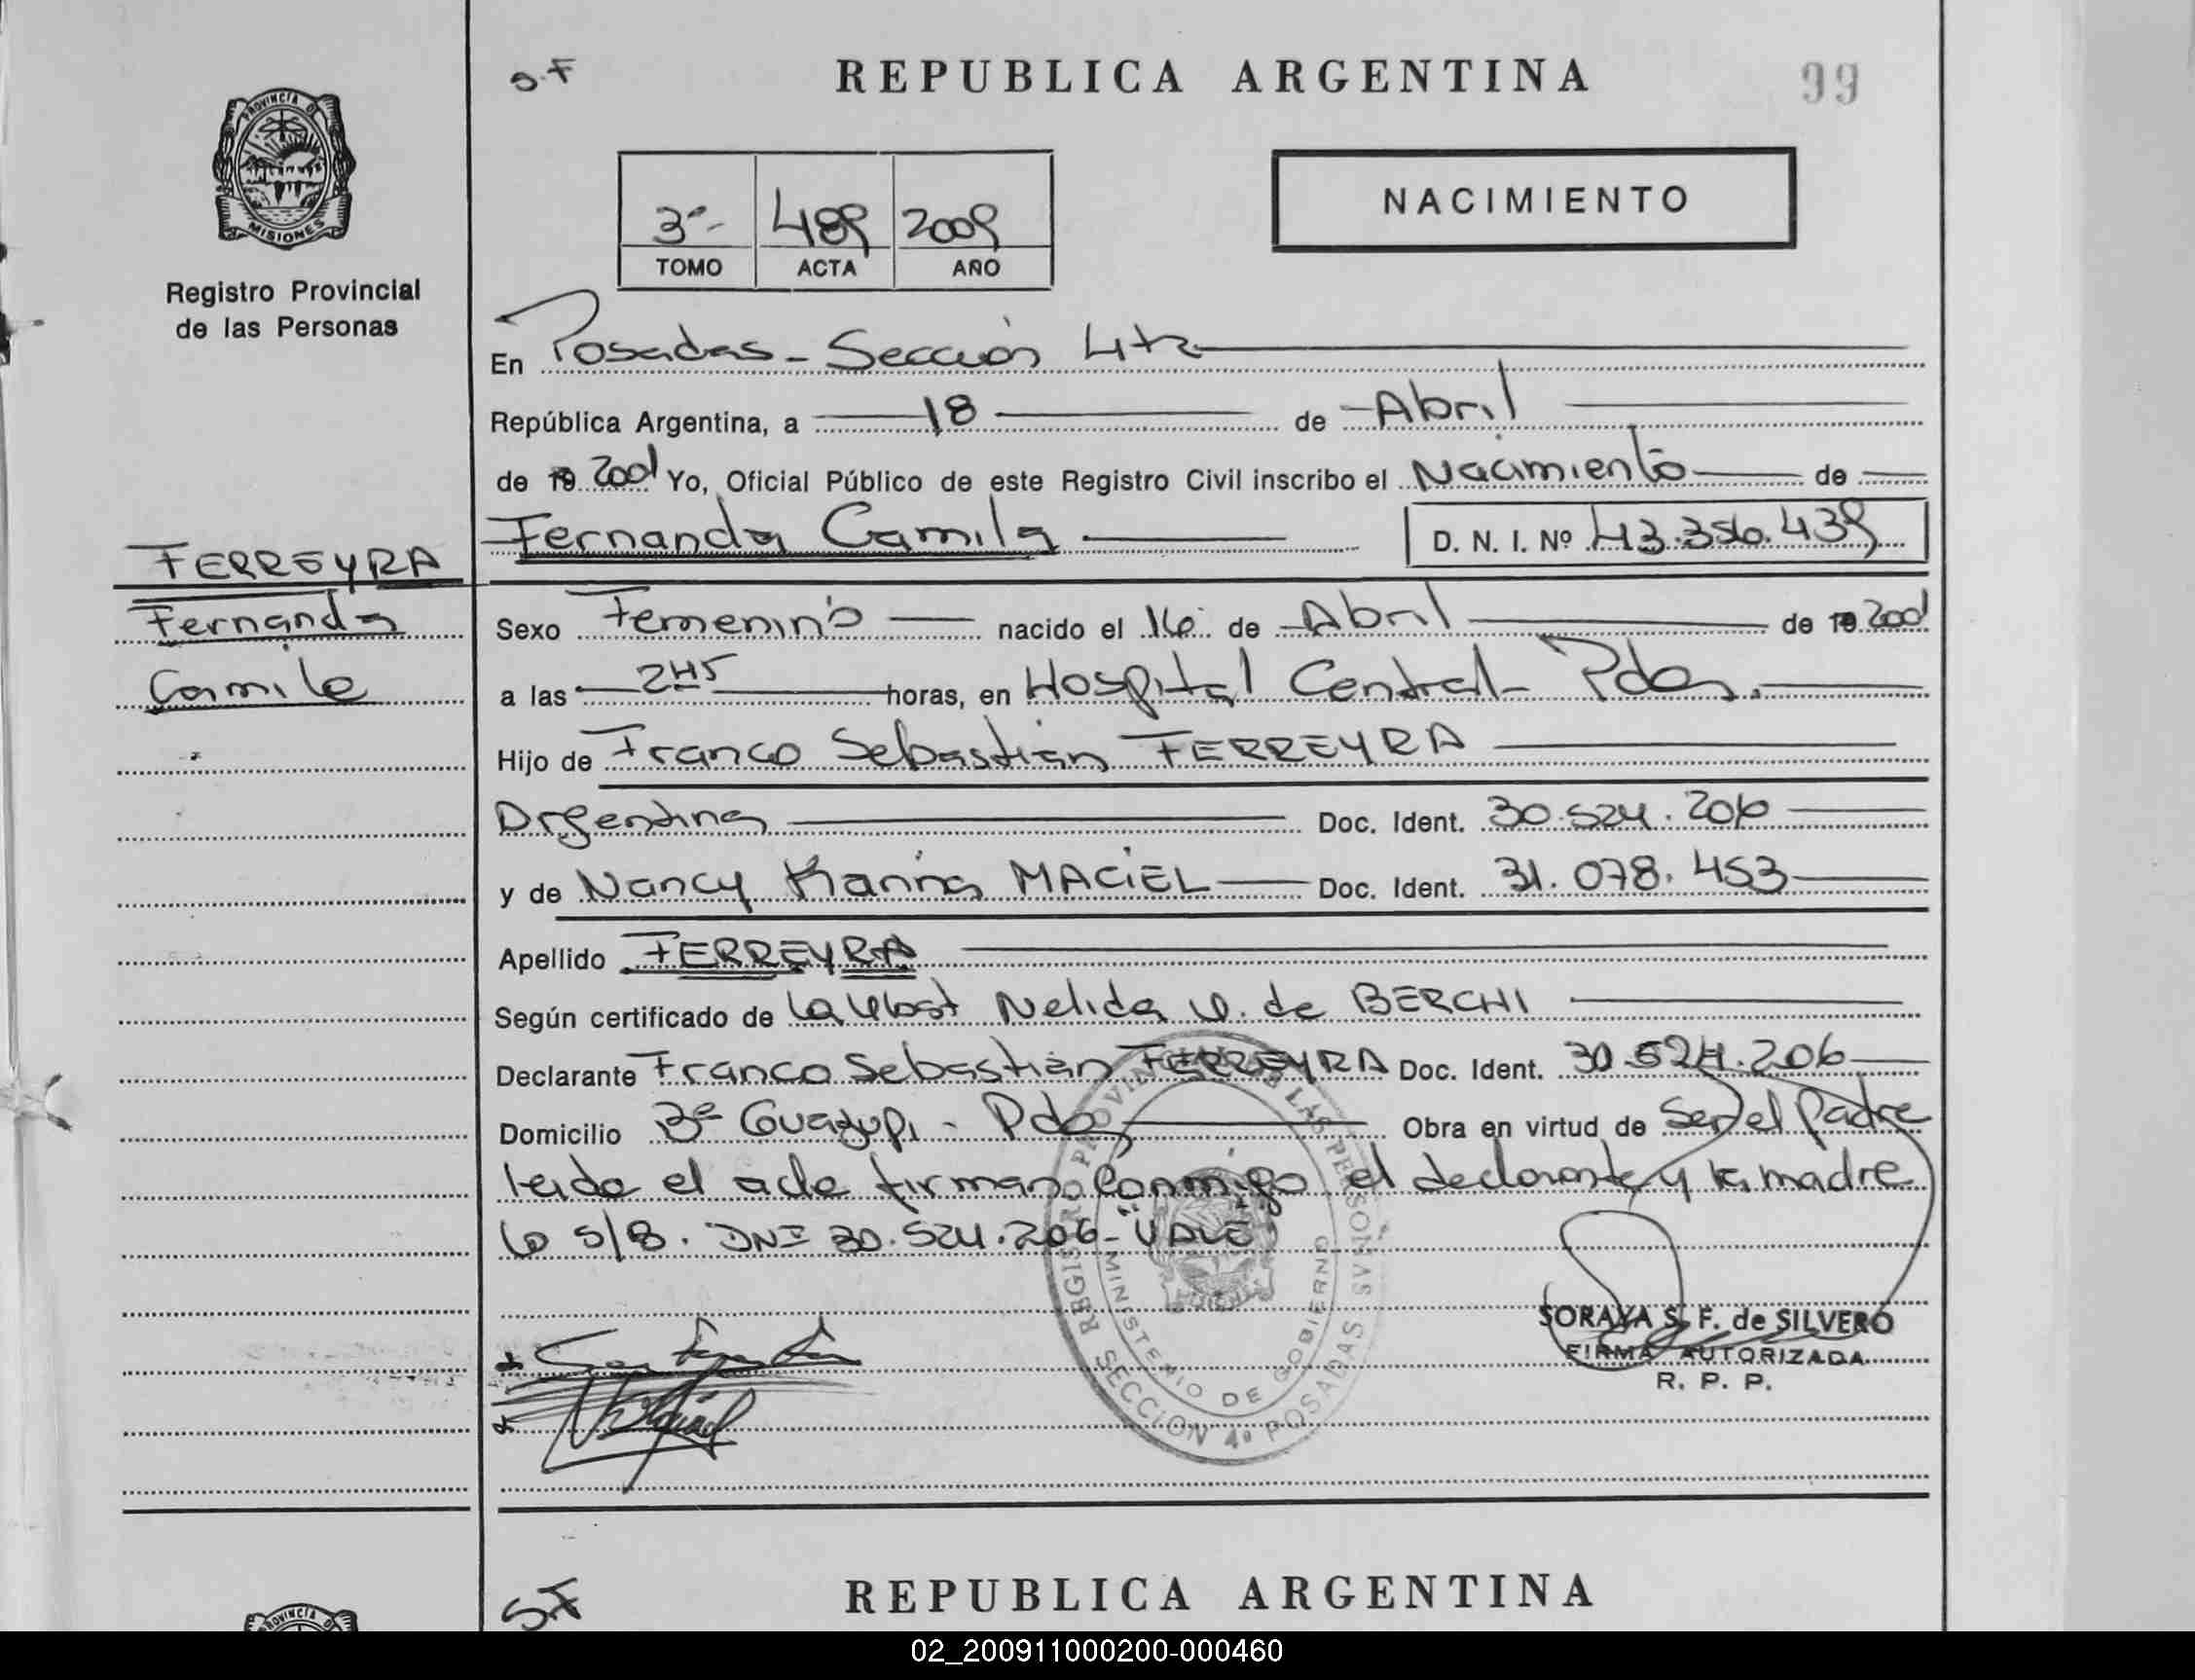 S.F
REPUBLICA ARGENTINA
99
PROVINCIA DE
MISIONES
Registro Provincial
de las Personas
3º- 489 2009
TOMO ACTA AÑO
NACIMIENTO
En Posadas - Sección 4ta
República Argentina, a 18 de Abril
de 19 2001 Yo, Oficial Público de este Registro Civil inscribo el Nacimiento de
Fernanda Camila D. N. I. Nº 43.356.439
FERREYRA
Fernanda
Camila
Sexo Femenino nacido el 16 de Abril de 19 2001
a las 245 horas, en Hospital Central - Pdas.
Hijo de Franco Sebastián FERREYRA
Argentina Doc. Ident. 30.524.206
y de Nancy Karina MACIEL Doc. Ident. 31.078.453
Apellido FERREYRA
Según certificado de la Obst Nelida V. de BERCHI
Declarante Franco Sebastián FERREYRA Doc. Ident. 30.524.206
Domicilio Bº Guazupi - Pdas Obra en virtud de Ser el Padre
leida el acta firman conmigo el declarante y la madre
lo s/B. DNI 30.524.206 - "VALE"
REGISTRO PROVINCIAL DE LAS PERSONAS
MINISTERIO DE GOBIERNO
SECCION 4ª POSADAS
SORAYA S. F. de SILVERO
FIRMA AUTORIZADA
R. P. P.
S.F
REPUBLICA ARGENTINA
PROVINCIA D
02_200911000200-000460